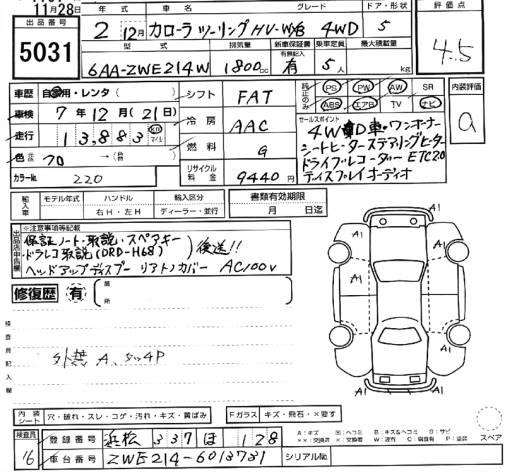 11月28日
出品番号
5031
年式 車名 グレード ドア・形状
2 12月 カローラ ツーリング HV-W×B 4WD 5
型式 排気量 新車保証書 有無記入 乗車定員 最大積載量
6AA-ZWE214W 1800cc 有 5人 kg
評価点
4.5
車歴 自家用・レンタ( )
車検 7年12月(21日)
走行 13,883 km マイル
色 070 → ( )
カラーNo. 220
シフト FAT
冷房 AAC
燃料 G
リサイクル料金 9440円
純正のみ PS PW AW SR
ABS エアB TV ナビ
内装評価
a
セールスポイント
4WD車・ワンオーナー
シートヒーターステアリングヒーター
ドライブレコーダー ETC2.0
ディスプレイオーディオ
輸入車 モデル年式 ハンドル 輸入区分 書類有効期限
右H・左H ディーラー・並行 月 日迄
出品店申告欄
※注意事項等記載
保証ノート・取説・スペアキー
ドラレコ取説(DRD-H68) 後送!!
ヘッドアップディスプレー リアトノカバー AC100V
修復歴 有
箇所
検査員記入欄
外装 A、
A1
A1
A1
A1
A1
A1
内装シート 穴・破れ・スレ・コゲ・汚れ・キズ・黄ばみ Fガラス キズ・飛石・×要す
検査員
16
登録番号 浜松 337 ほ 128
車台番号 ZWE214-6013731
シリアルNo.
A:キズ 凹:ヘコミ B:キズ&ヘコミ D:ヘコミ
××:交換済 ×:交換要 W:波有 C:腐食有 P:塗装 スペア